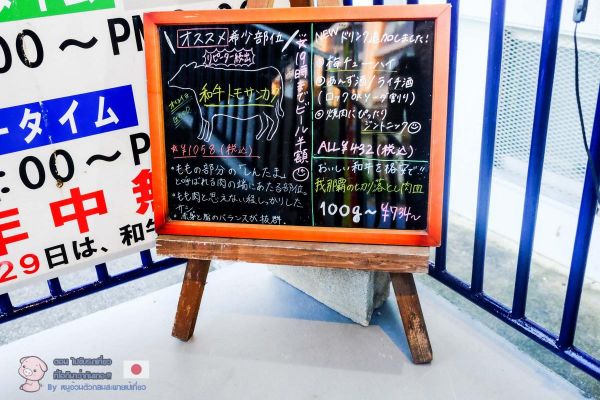 オススメ希少部位
リピーター続出
和牛トモサンカク
¥1058(税込)
・ももの部分の「しんたま」
と呼ばれる肉の場にあたる部位。
・もも肉と思えない程しっかりした
サシ
・赤身と脂のバランスが抜群。
19時までビール半額
NEWドリンク追加しました!
梅チューハイ
あんず酒/ライチ酒
(ロックORソーダ割り)
焼肉にぴったり
ジントニック
ALL¥432(税込)
おいしい和牛を格安で!!
我那覇の切り落とし肉皿
100g〜¥734〜
:00〜PM
タイム
:00〜P
年中無
29日は、和牛
ตอน ไปรับรถเที่ยว
By หมูอ้วนตัวกลมสะพายเป้เที่ยว